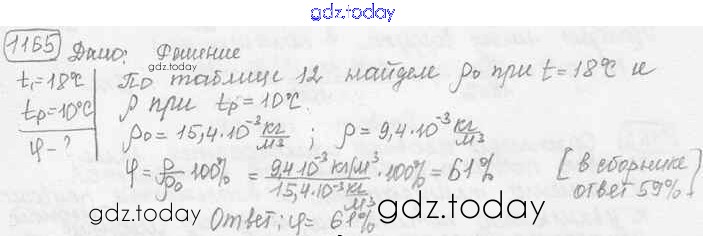 gdz.today
1165 Дано: Решение
t₁=18°C По таблице 12 найдем ρ₀ при t=18°C и
tр=10°C ρ при tр=10°C.
φ-? ρ₀=15,4·10⁻³ кг/м³ ; ρ=9,4·10⁻³ кг/м³
φ=ρ/ρ₀ 100% = 9,4·10⁻³ кг/м³ / 15,4·10⁻³ кг/м³ ·100% = 61% [в сборнике
ответ 59%]
Ответ: φ= 61%
gdz.today
gdz.today
gdz.today